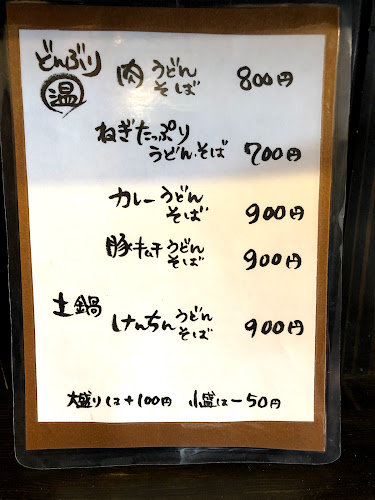 どんぶり
温
肉うどん
そば
800円
ねぎたっぷり
うどん・そば 700円
カレーうどん
そば
900円
豚キムチうどん
そば
900円
土鍋
けんちんうどん
そば
900円
大盛りは+100円 小盛は-50円